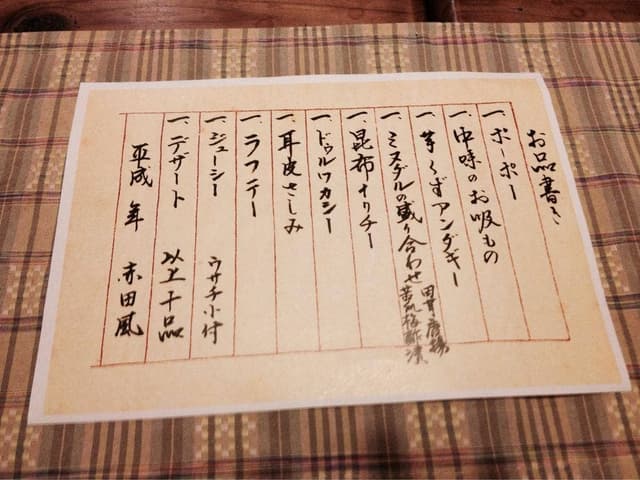 お品書き
一、ポーポー
一、中味のお吸もの
一、芋くずアンダギー
一、ミヌダルの盛り合わせ 田芋唐揚
一、昆布イリチー
一、ドゥルワカシー
一、耳皮さしみ
一、ラフテー
一、ジューシー ウサチ小付
一、デザート 以上十品
平成 年 赤田風